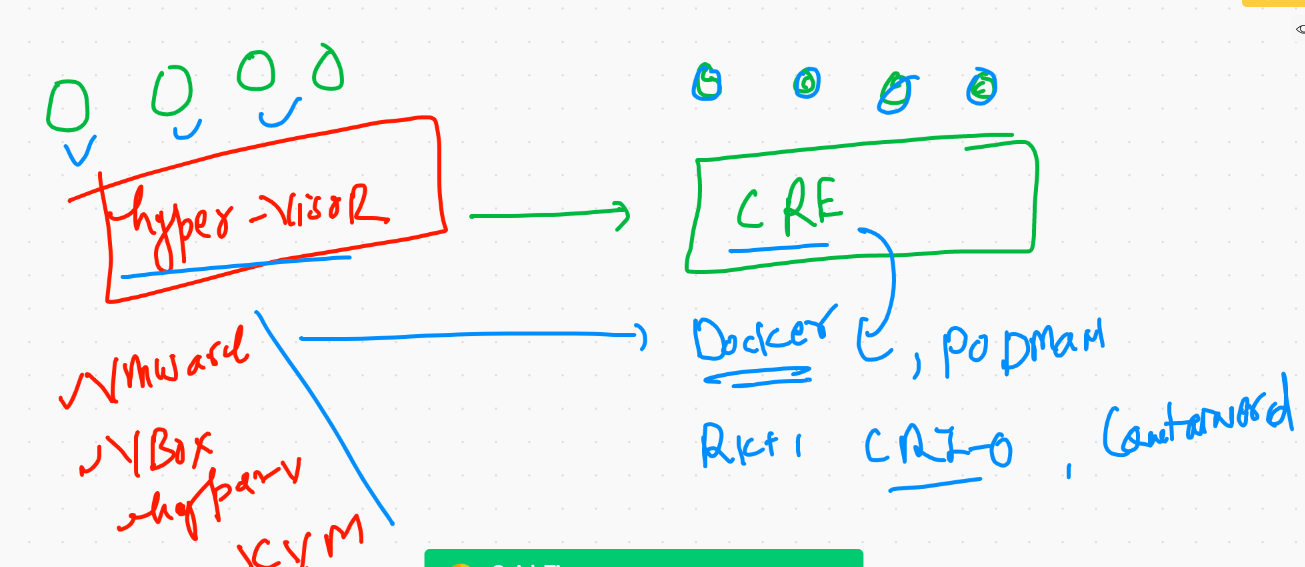 hyper-visoR
CRE
Vmware
VBox
hyperv
KVM
Docker, PODMAN
Rkt, CRI-O,